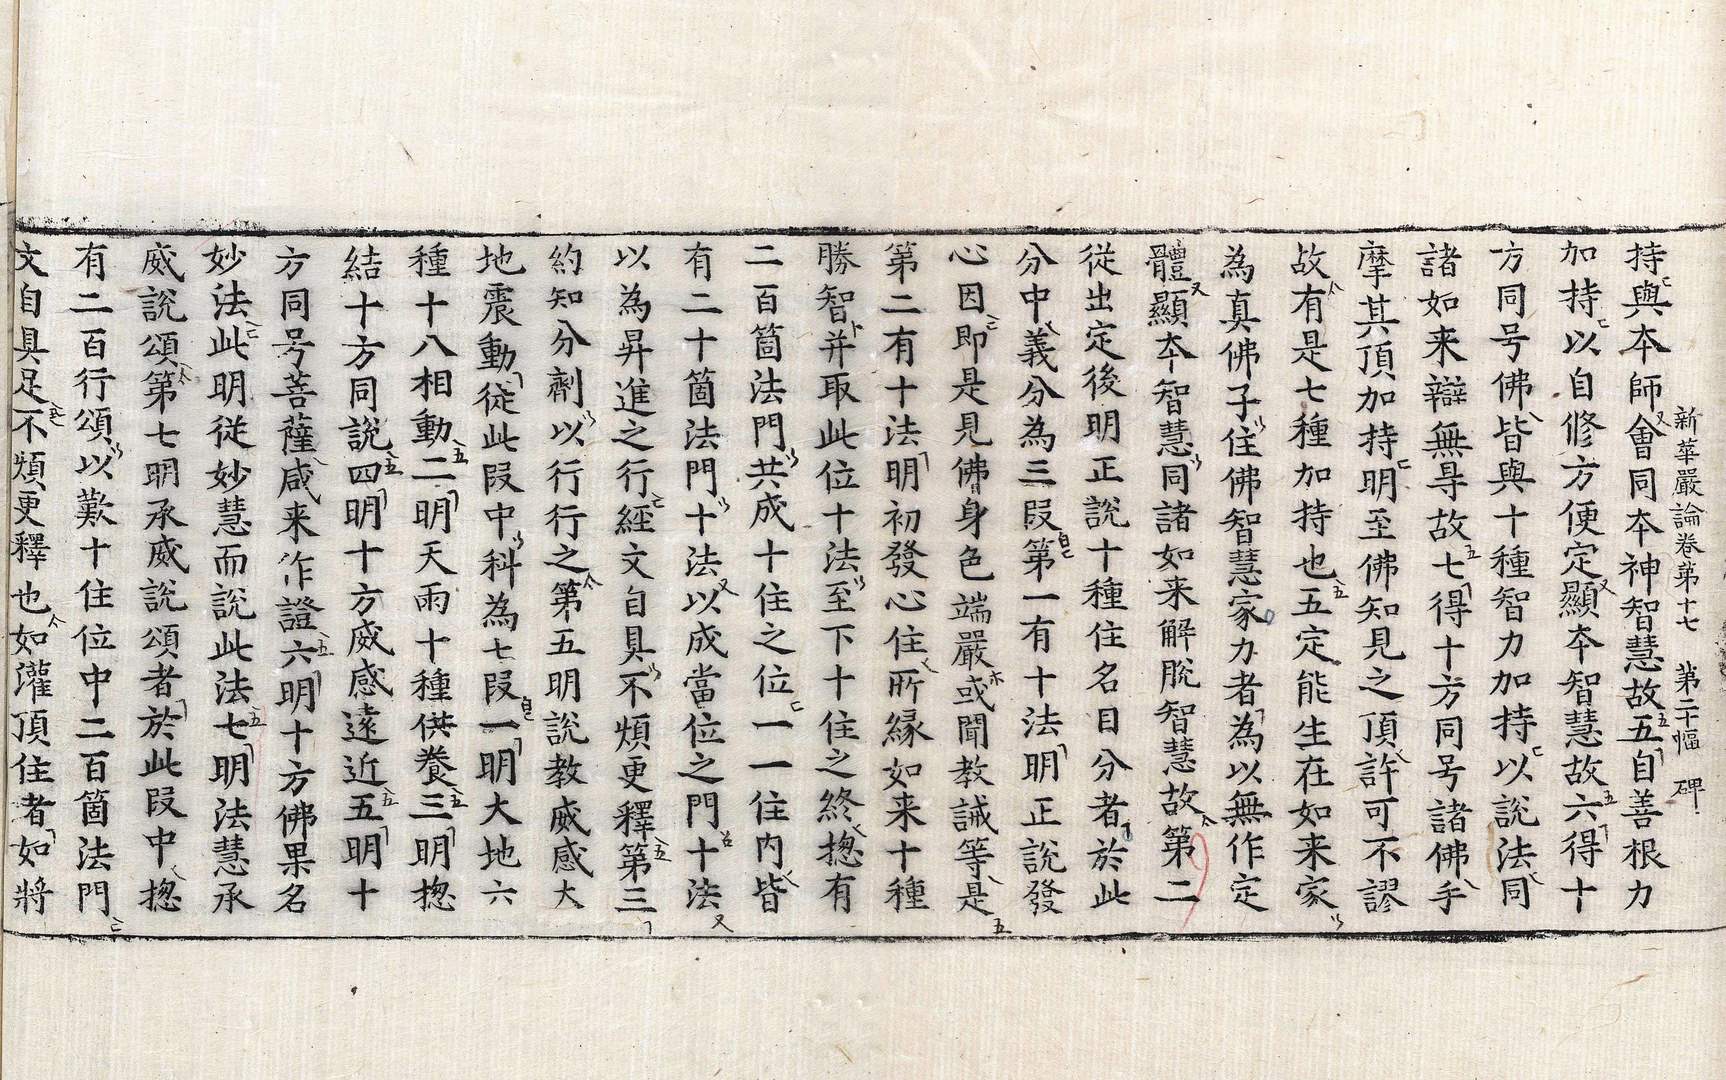 新華嚴論卷第十七　第二十幅　碑
持與本師會同本神智慧故五自善根力
加持以自修方便定顯本智慧故六得十
方同号佛皆與十種智力加持以說法同
諸如来辯無㝵故七得十方同号諸佛手
摩其頂加持明至佛知見之頂許可不謬
故有是七種加持也五定能生在如来家
為真佛子住佛智慧家力者為以無作定
體顯本智慧同諸如来解脫智慧故第二
從出定後明正說十種住名目分者於此
分中義分為三段第一有十法明正說發
心因即是見佛身色端嚴或聞教誡等是
第二有十法明初發心住所縁如来十種
勝智并取此位十法至下十住之終揔有
二百箇法門共成十住之位一一住内皆
有二十箇法門十法以成當位之門十法
以為昇進之行經文自具不煩更釋第三
約知分劑以行行之第五明說教威感大
地震動從此段中科為七段一明大地六
種十八相動二明天雨十種供養三明揔
結十方同說四明十方威感遠近五明十
方同号菩薩咸来作證六明十方佛果名
妙法此明從妙慧而說此法七明法慧承
威說頌第七明承威說頌者於此段中揔
有二百行頌以歎十住位中二百箇法門
文自具足不煩更釋也如灌頂住者如將